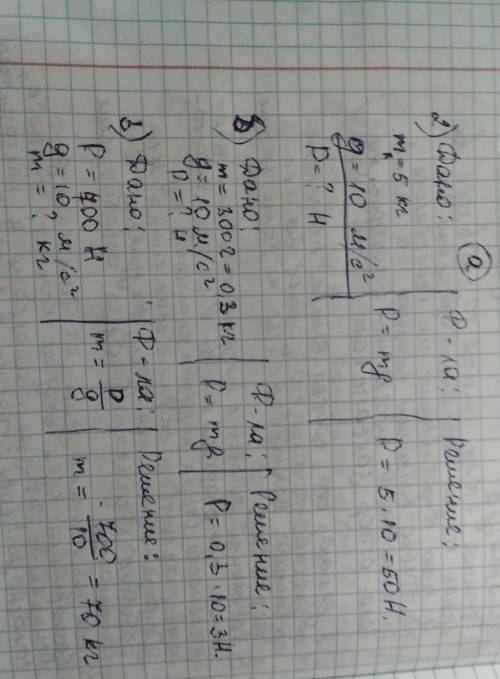 2) Дано: | Ф-ла: | Решение:
(а)
m = 5 кг
g = 10 м/с² | P = mg | P = 5 · 10 = 50 Н.
P = ? Н
б) Дано: | Ф-ла: | Решение:
m = 300 г = 0,3 кг
g = 10 м/с² | P = mg | P = 0,3 · 10 = 3 Н.
P = ? Н
в) Дано: | Ф-ла: | Решение:
P = 700 Н | m = P/g | m = 700/10 = 70 кг
g = 10, м/с²
m = ? кг